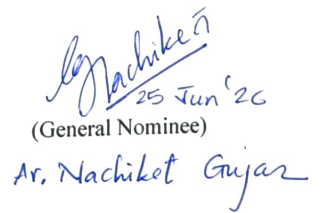 Nachiket
25 Jun '26
(General Nominee)
Ar. Nachiket Gujar